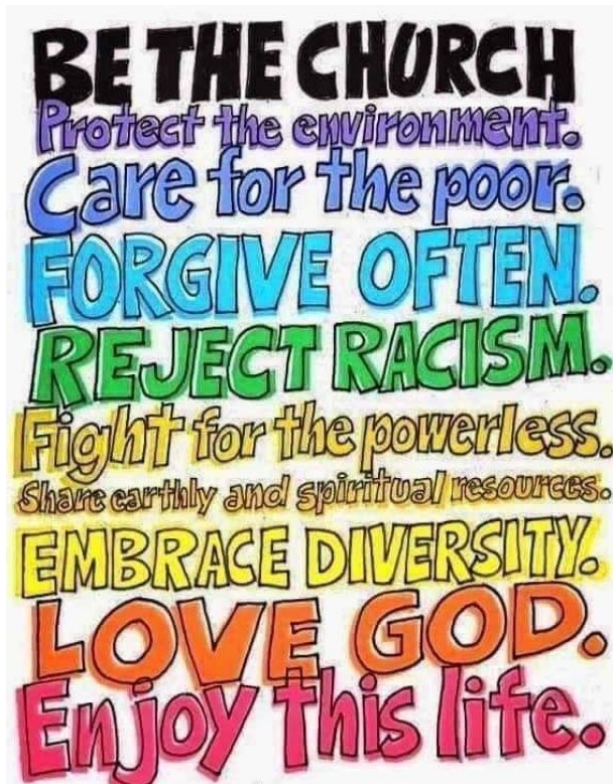 BE THE CHURCH
Protect the environment.
Care for the poor.
FORGIVE OFTEN.
REJECT RACISM.
Fight for the powerless.
Share earthly and spiritual resources.
EMBRACE DIVERSITY.
LOVE GOD.
Enjoy this life.